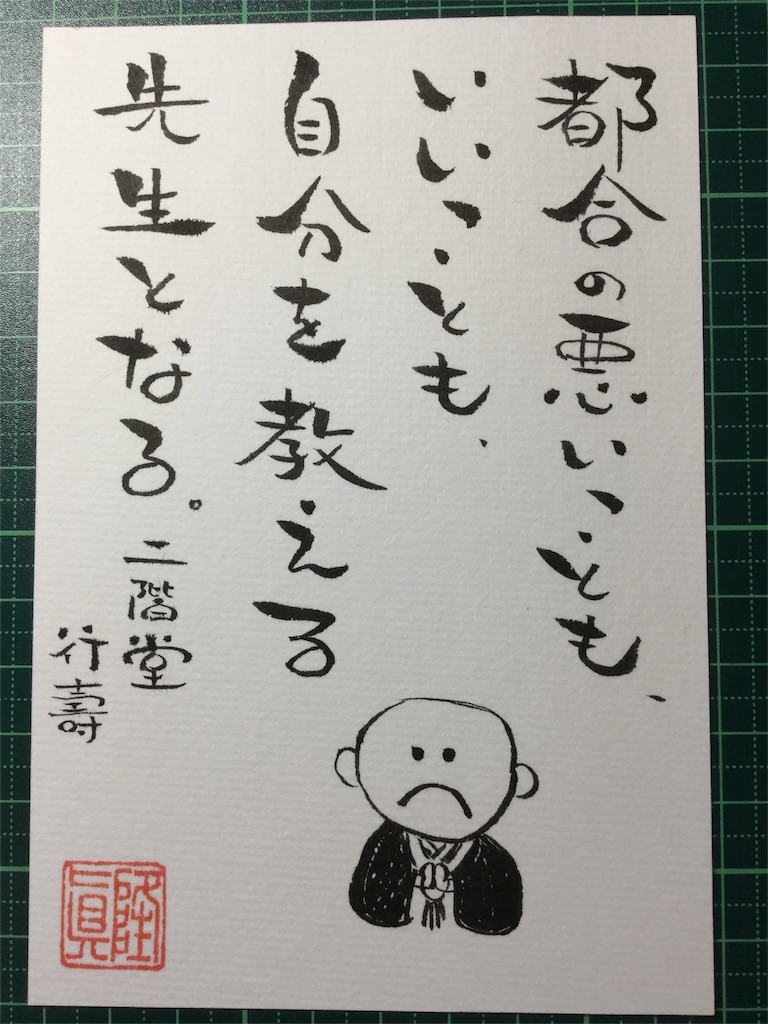 都合の悪いことも、
いいことも、
自分を教える
先生となる。
二階堂
行壽